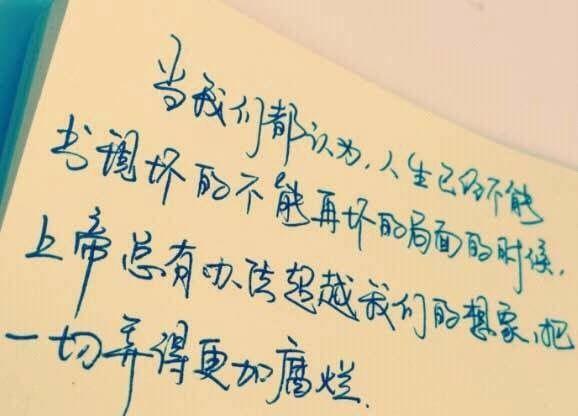 当我们都认为,人生已经不能
出现坏的不能再坏的局面的时候,
上帝总有办法超越我们的想象,把
一切弄得更加腐烂.